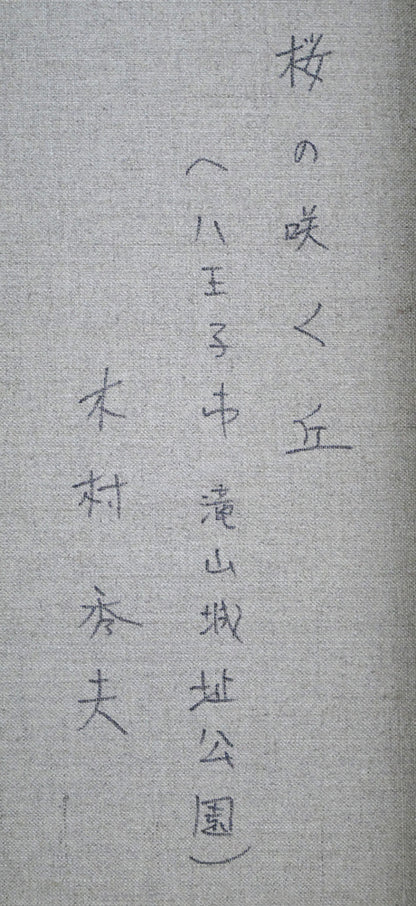 桜の咲く丘
(八王子市 滝山城址公園)
木村秀夫